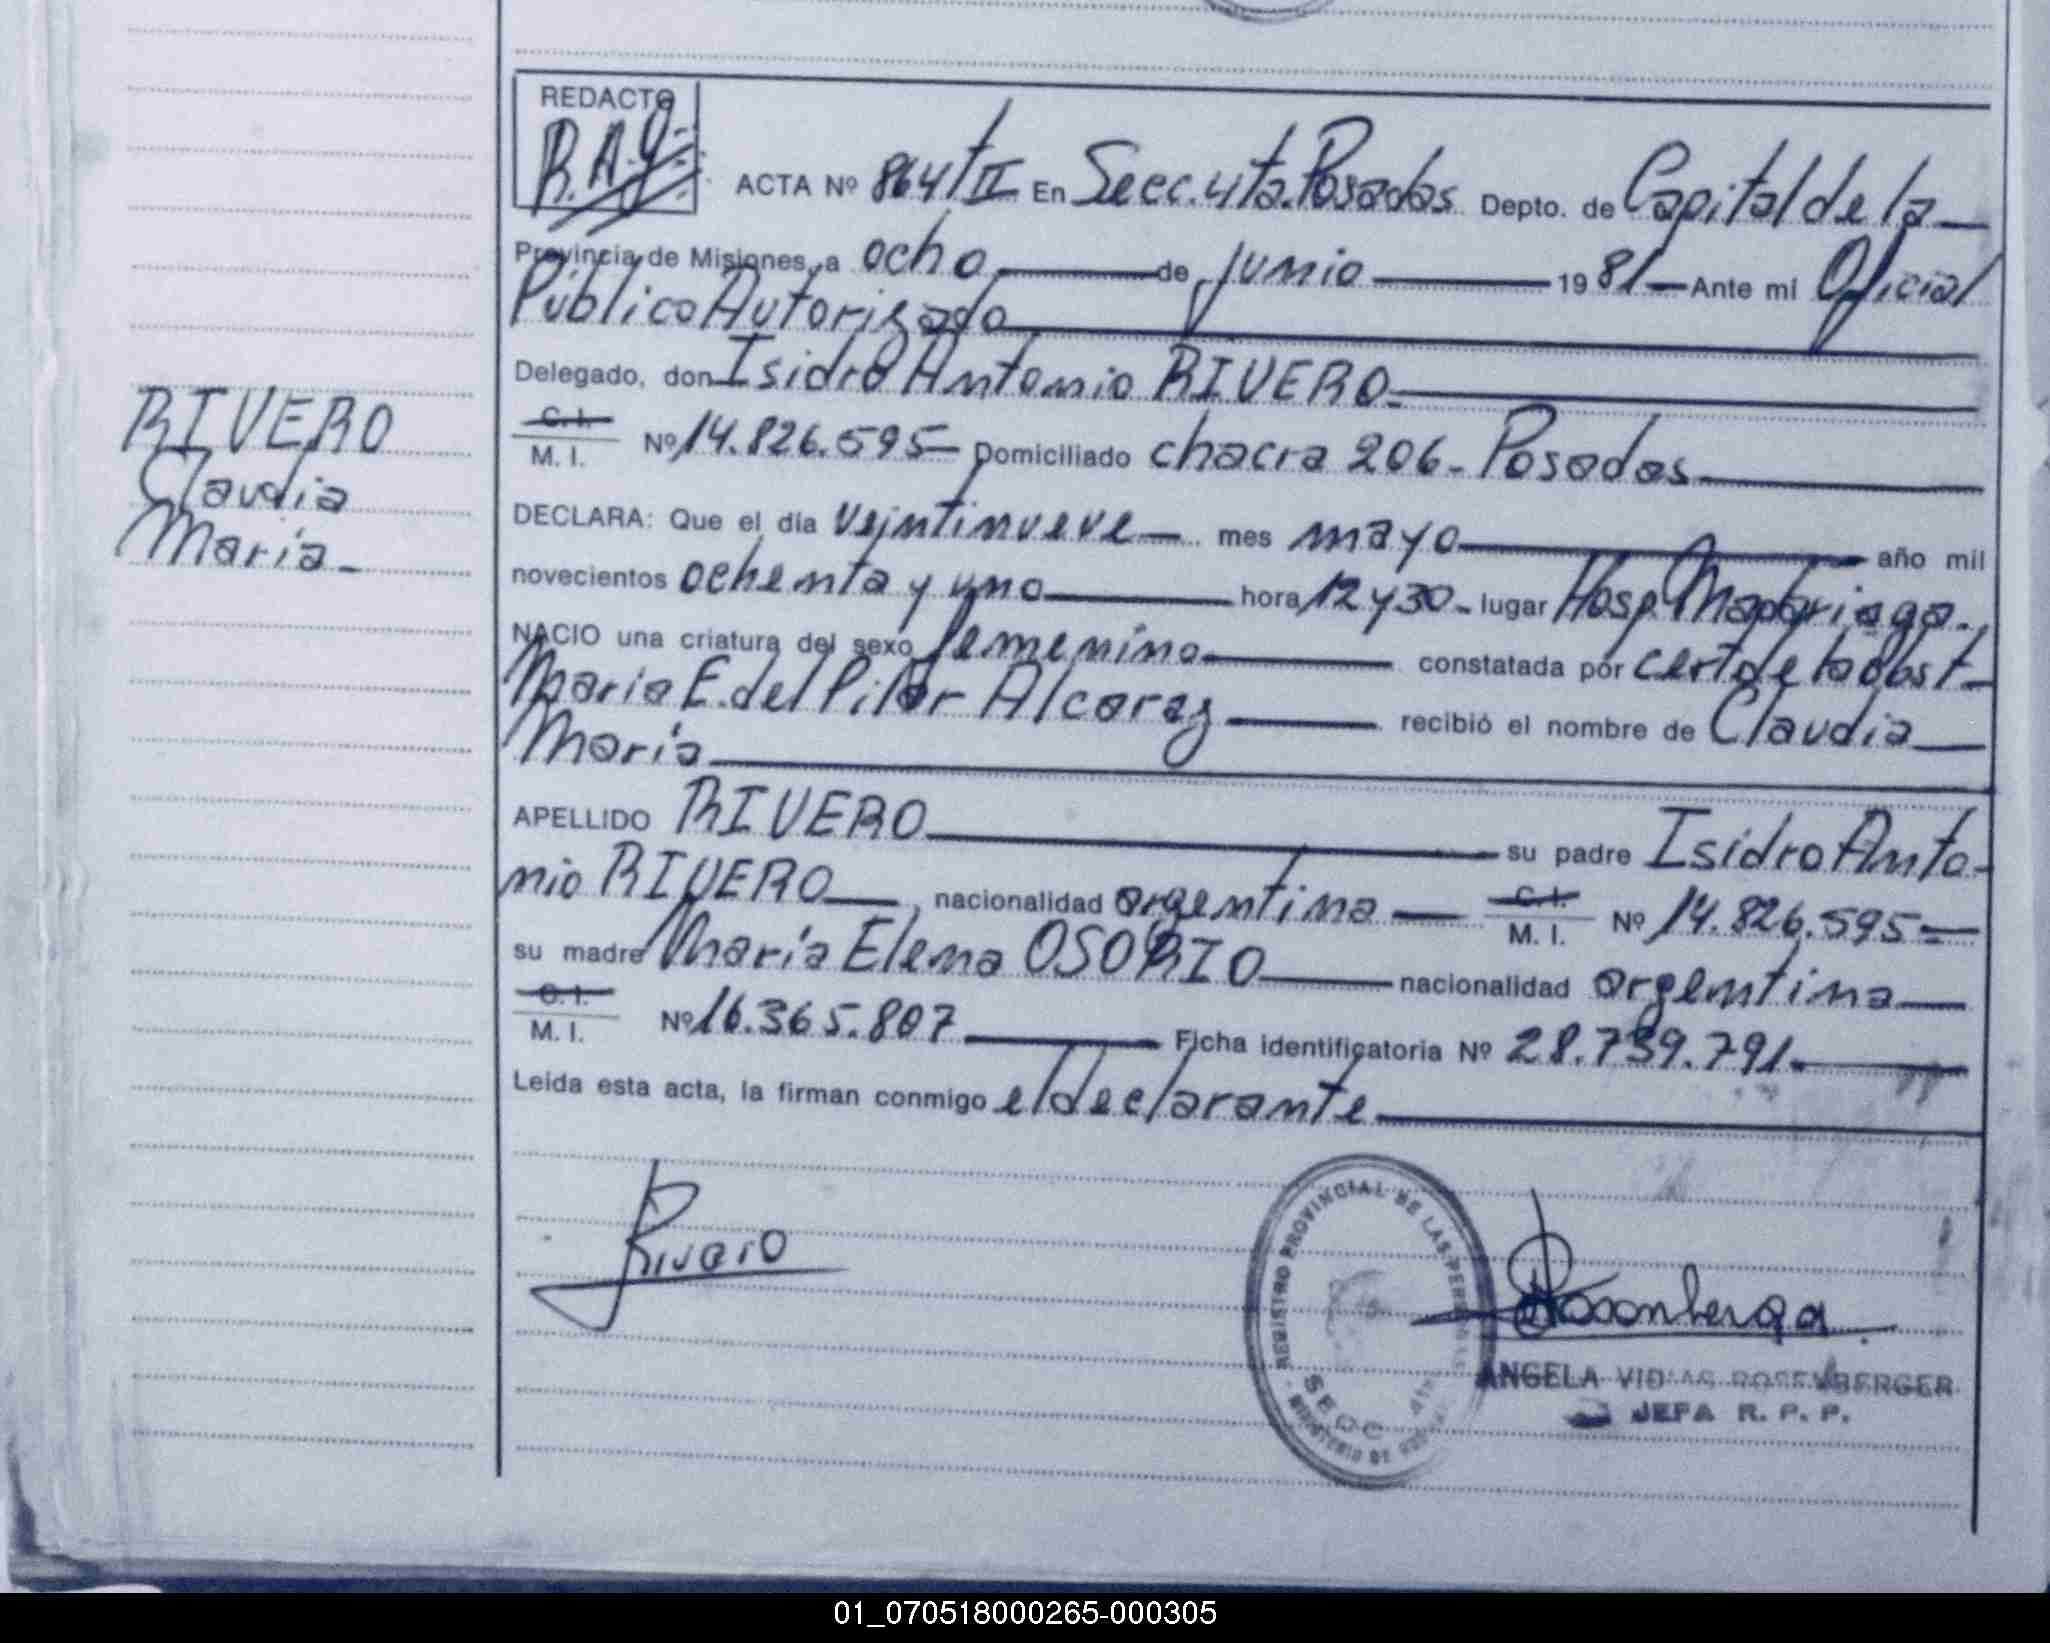 REDACTO
R.A.G.
ACTA Nº 864/II En Secc. 4ta. Posadas Depto. de Capital de la
Provincia de Misiones, a ocho de junio 1981 Ante mi Oficial
Público Autorizado
Delegado, don Isidro Antonio RIVERO.
C. I.
M. I. Nº 14.826.595 Domiciliado chacra 206 - Posadas
DECLARA: Que el día veintinueve mes mayo año mil
novecientos ochenta y uno hora 12 y 30 - lugar Hosp. Madariaga.
NACIO una criatura del sexo femenino constatada por cert de la obst
Maria E. del Pilar Alcaraz recibió el nombre de Claudia
María
RIVERO
Claudia
María -
APELLIDO RIVERO su padre Isidro Anto-
nio RIVERO nacionalidad argentina C. I.
M. I. Nº 14.826.595=
su madre María Elena OSORIO nacionalidad argentina
C. I.
M. I. Nº 16.365.807 Ficha identificatoria Nº 28.739.791.
Leida esta acta, la firman conmigo el declarante
Rivero
REGISTRO PROVINCIAL DE LAS PERSONAS
MINISTERIO DE
SECC 4ta
ANGELA VIDAS ROSENBERGER
JEFA R. P. P.
01_070518000265-000305